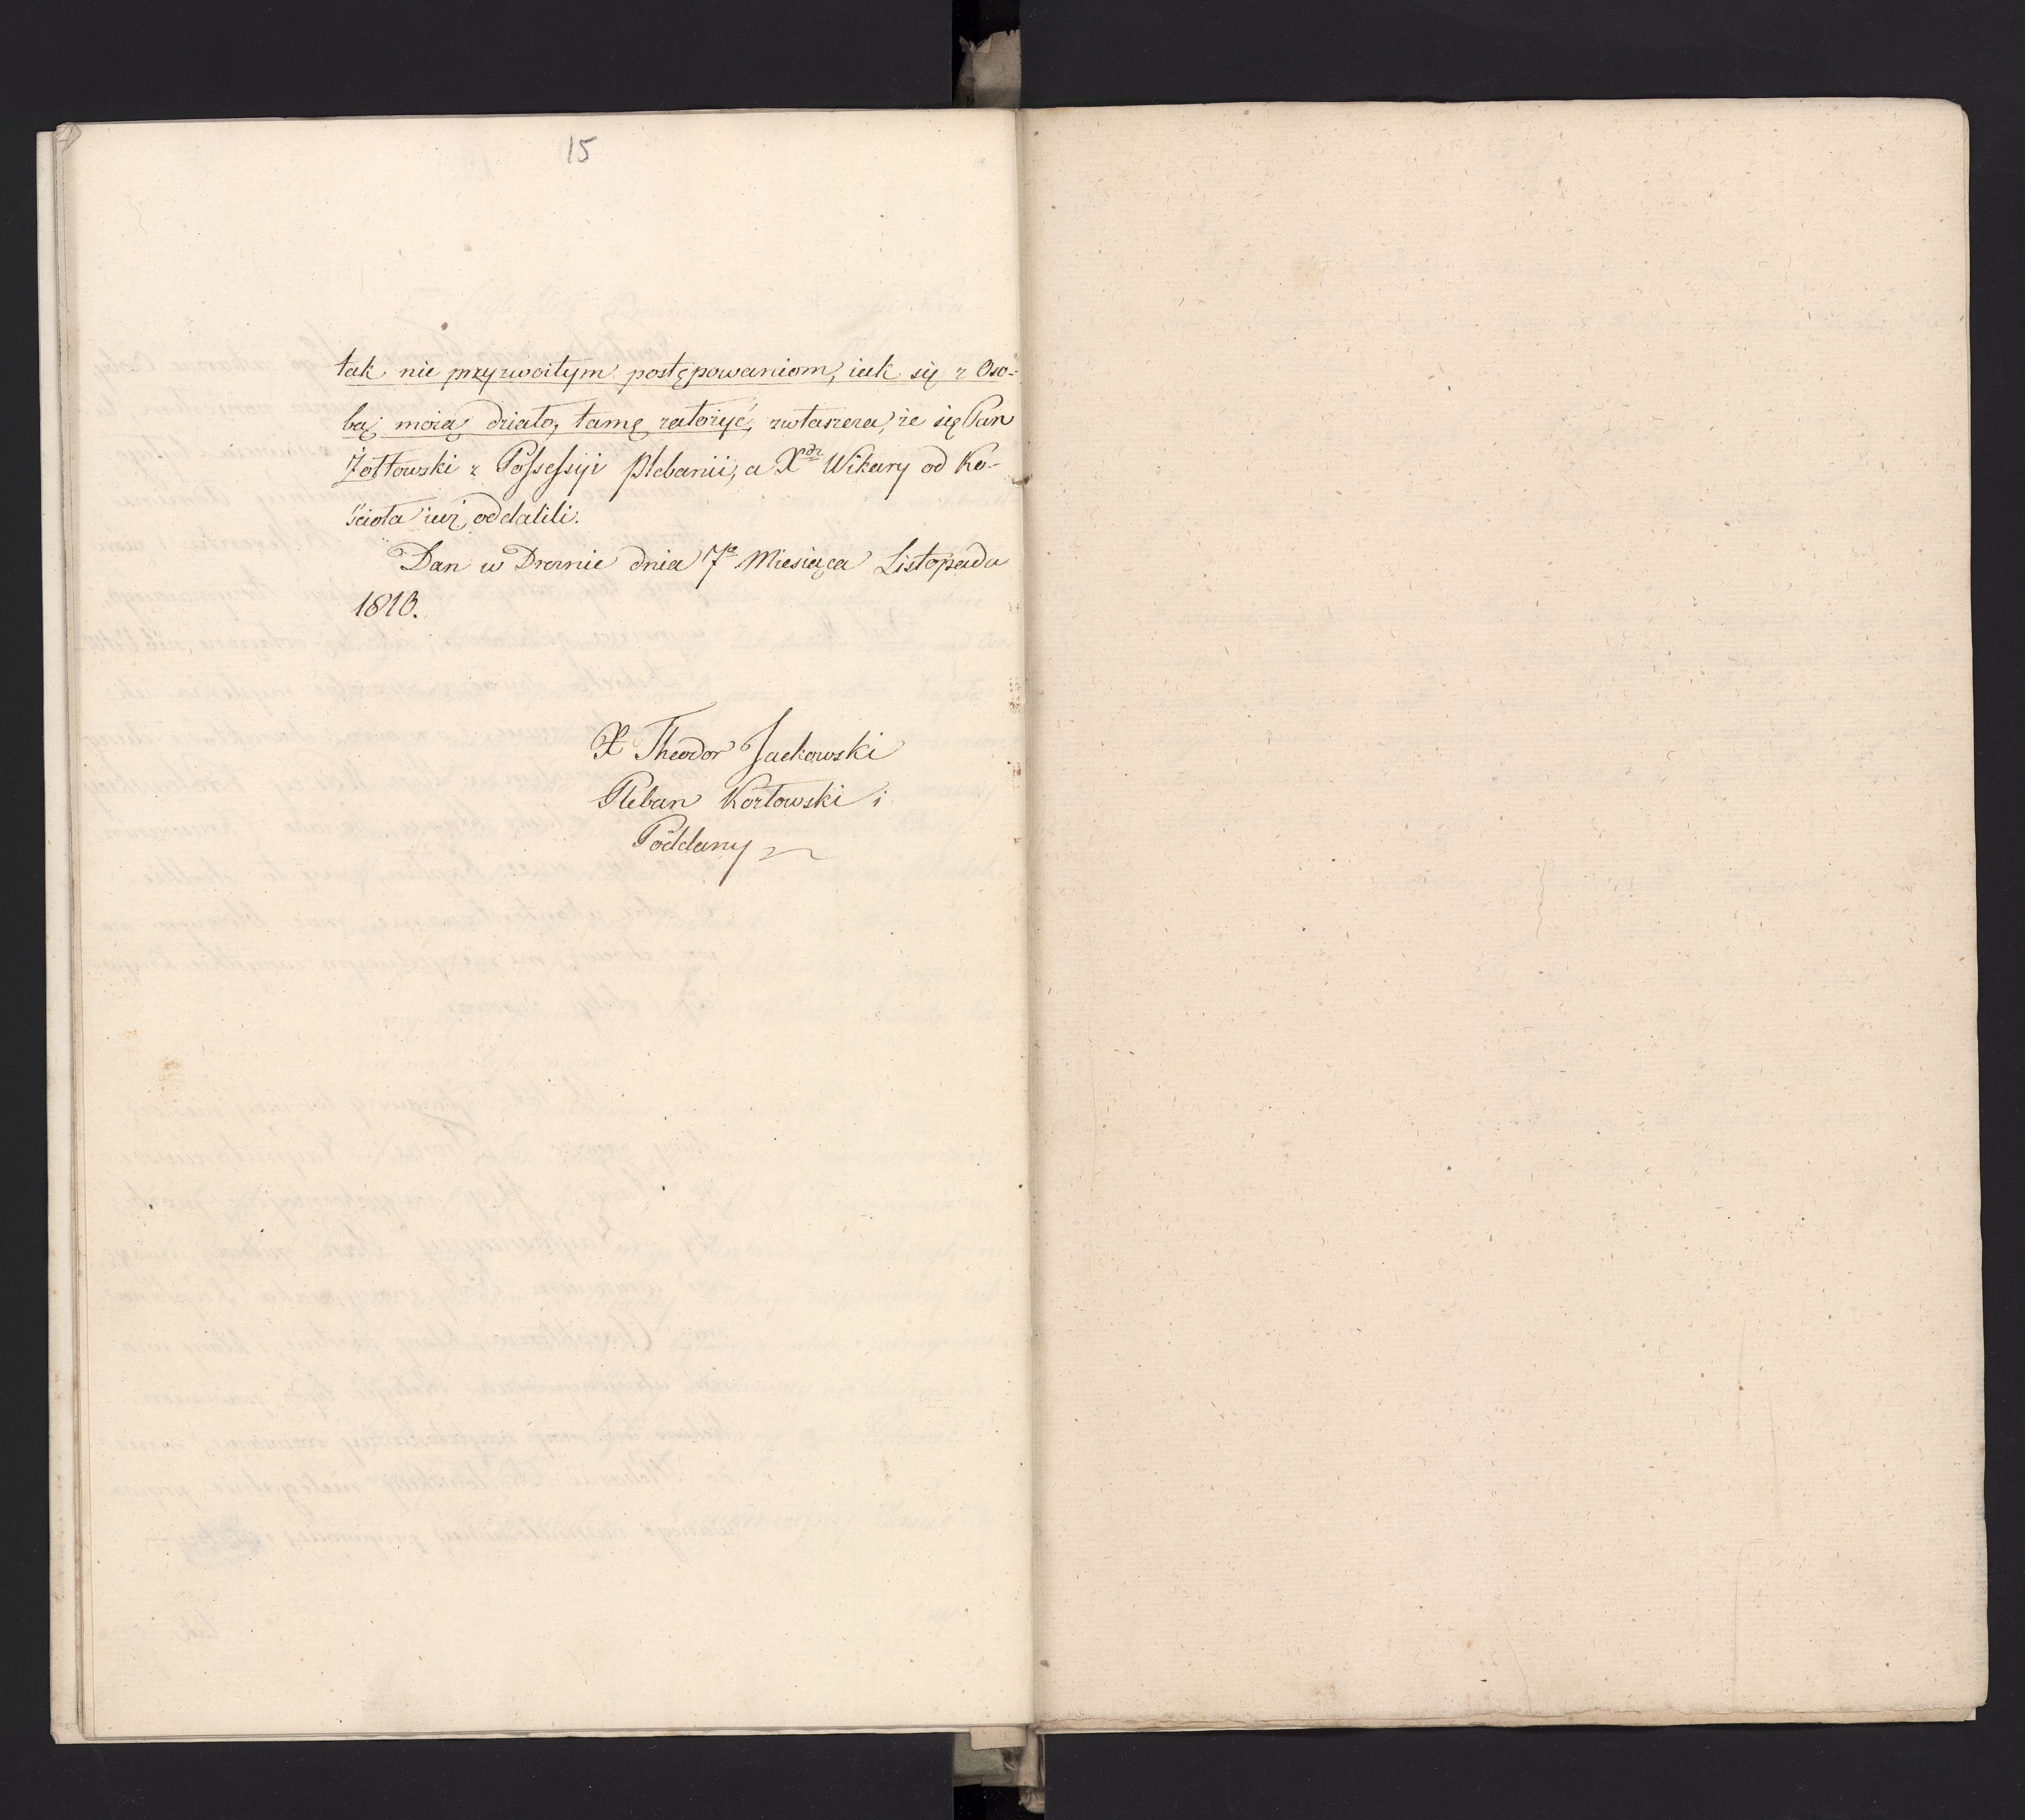 15
tak nie przyzwoitym postępowaniom, iak się z Oso-
bą moią działo, tamę założyć, zwłaszcza, że się Pan
Żółtowski z Possessyi Plebanii, a X<sup>dz</sup> Wikary od Ko-
ścioła iuż oddalili.
Dan w Drzznie dnia 7<sup>o</sup> Miesiąca Listopada
1810.
X Theodor Jackowski
Pleban Kozłowski i
Poddany